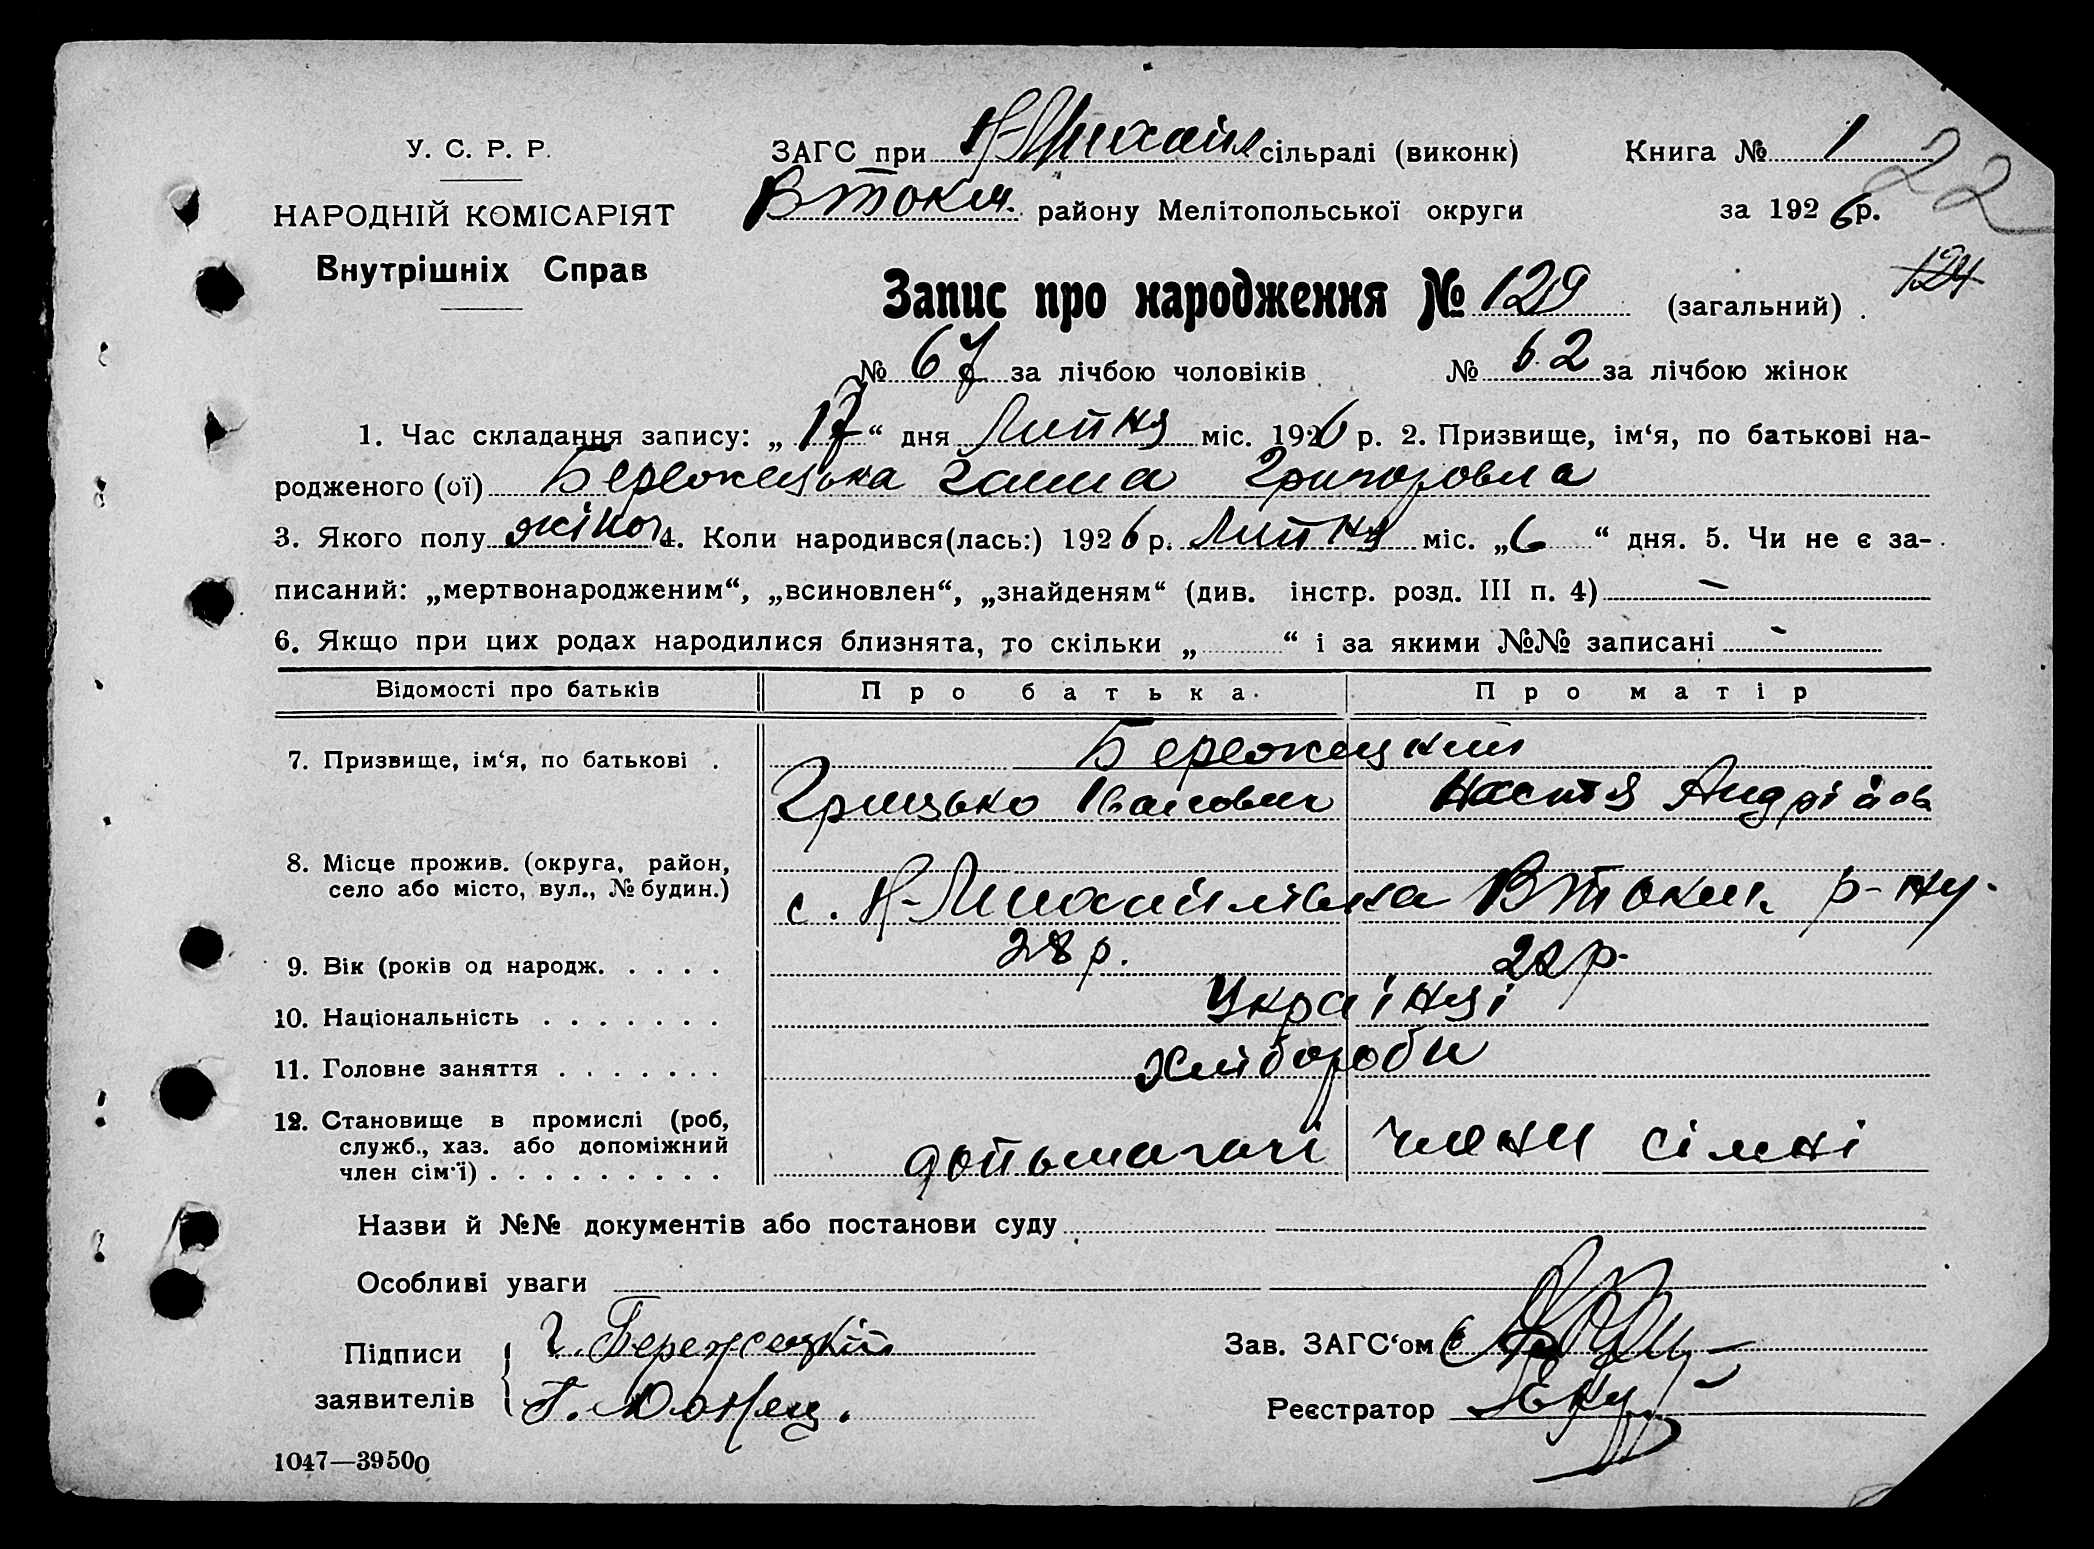 У. С. Р. Р.
НАРОДНІЙ КОМІСАРІЯТ
Внутрішніх Справ
ЗАГС при Н-Михайл сільраді (виконк)
ВТокм. району Мелітопольської округи
Книга № 1
за 1926 р.
22
124
Запис про народження № 129 (загальний)
№ 67 за лічбою чоловіків № 62 за лічбою жінок
1. Час складання запису: „17“ дня Липня міс. 1926 р. 2. Призвище, ім‘я, по батькові на-
родженого (ої) Бережецька Ганна Григоровна
3. Якого полу жіноч 4. Коли народився(лась:) 1926 р. Липня міс. „6“ дня. 5. Чи не є за-
писаний: „мертвонародженим“, „всиновлен“, „знайденям“ (див. інстр. розд. III п. 4) —
6. Якщо при цих родах народилися близнята, то скільки „ “ і за якими №№ записані -
Відомості про батьків Про батька. Про матір
7. Призвище, ім‘я, по батькові . Бережецкий
Грицько Іванович Настя Андрійов
8. Місце прожив. (округа, район,
село або місто, вул., № будин.)
с. Н-Михайлівка ВТокм. р-ну.
9. Вік (років од народж. . . . . 28 р. 22 р.
10. Національність . . . . . . . Українці
11. Головне заняття . . . . . . . Хлібороби
12. Становище в промислі (роб,
служб., хаз. або допоміжний
член сім‘ї) . . . . . . . . . допомагачі члени сімні
Назви й №№ документів або постанови суду
Особливі уваги
Підписи
заявителів
Г. Бережецкій
Зав. ЗАГС‘ом
Реєстратор
1047—39500